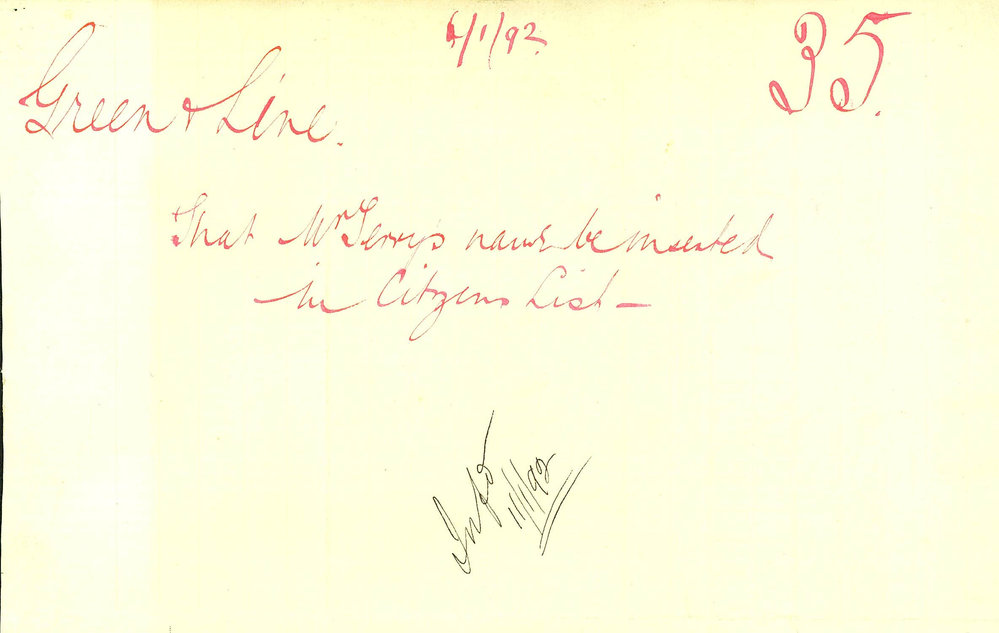 6/1/92
35.
Green & Line.
That Mr Terry's name be inserted
in Citizens List —
Info
11/1/92